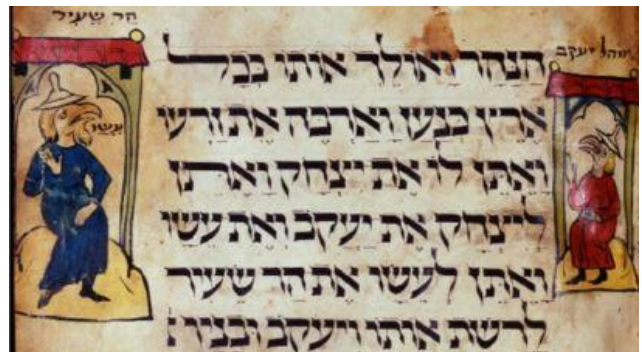 הַר שֵׂעִיר
יעקב
הַנָּהָר וָאוֹלֵךְ אוֹתוֹ בְּכָל
אֶרֶץ כְּנַעַן וָאַרְבֶּה אֶת זַרְעוֹ
וָאֶתֵּן לוֹ אֶת יִצְחָק וָאֶתֵּן
לְיִצְחָק אֶת יַעֲקֹב וְאֶת עֵשָׂו
וָאֶתֵּן לְעֵשָׂו אֶת הַר שֵׂעִיר
לָרֶשֶׁת אוֹתוֹ וְיַעֲקֹב וּבָנָיו
עֵשָׂו